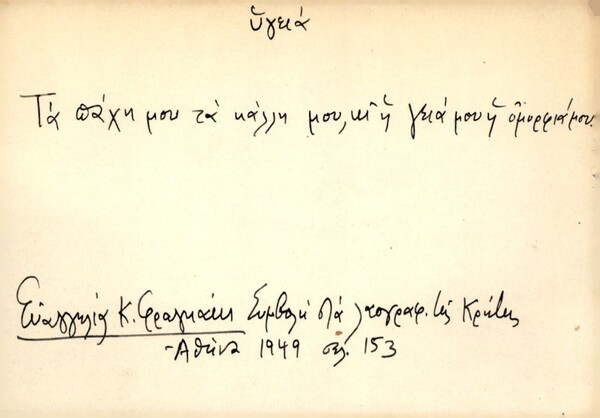 ὑγειά
Τά πάχη μου τά κάλλη μου, κι' ἡ γειά μου ἡ ὀμορφιά μου.
Εὐαγγελία Κ. Φραγκάκι Συμβολή στά λαογραφ. τῆς Κρήτης
Ἀθήνα 1949 σελ. 153